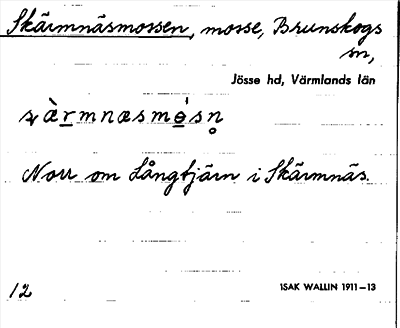 Skärmnäsmossen, mosse, Brunskogs
sn,
Jösse hd, Värmlands län
Norr om Långtjärn i Skärmnäs.
12
ISAK WALLIN 1911–13